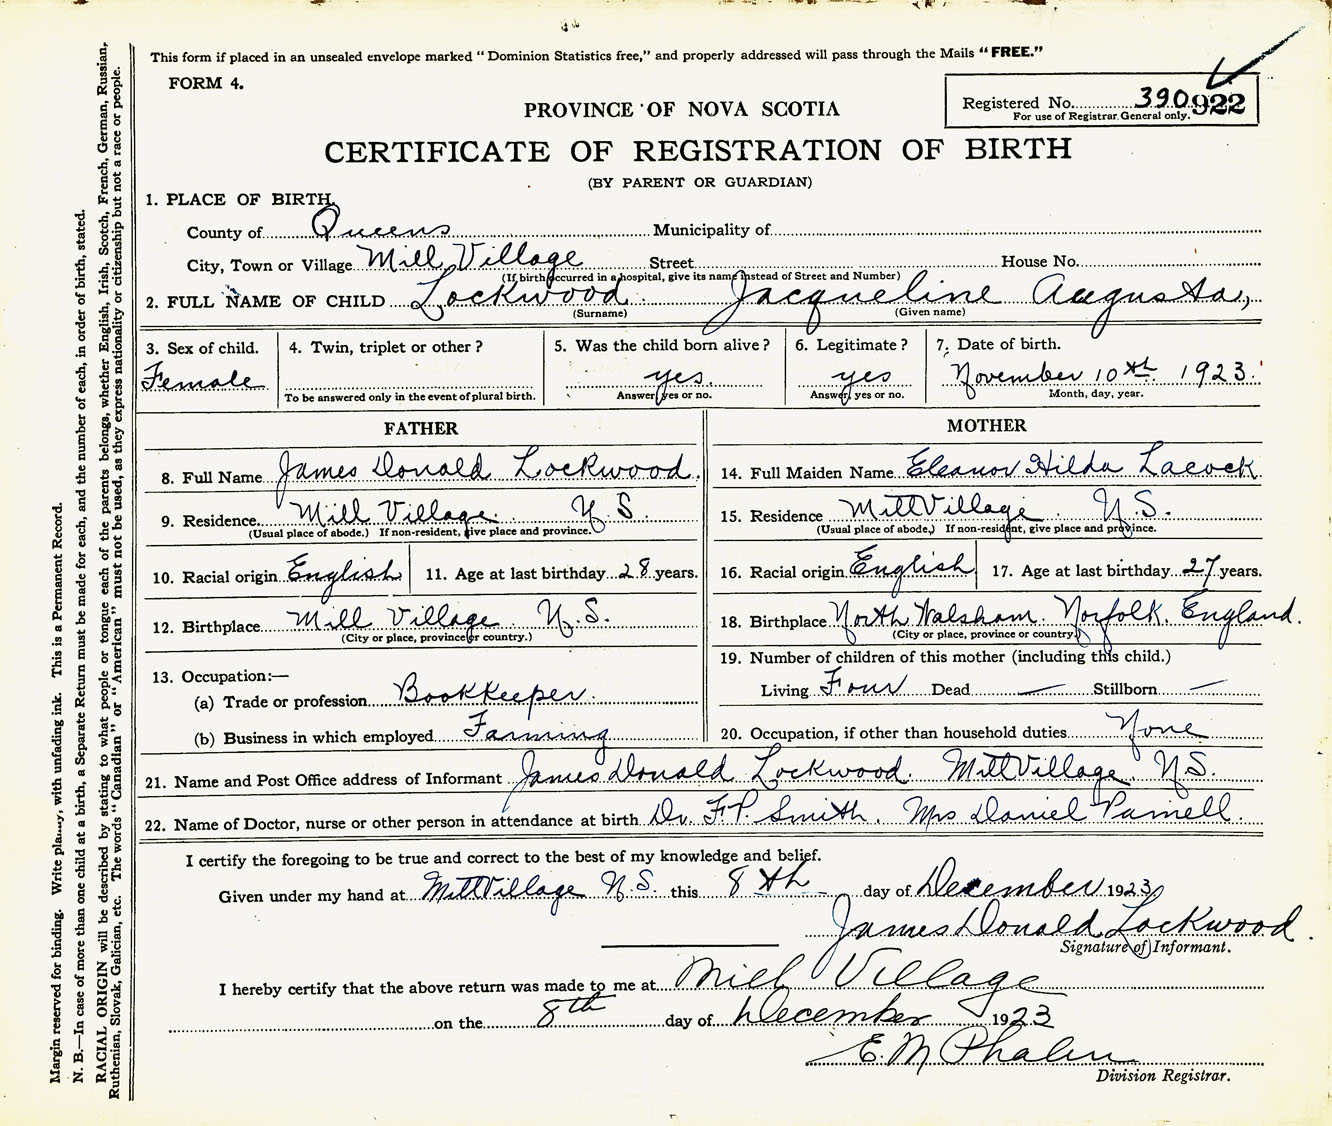 This form if placed in an unsealed envelope marked "Dominion Statistics free," and properly addressed will pass through the Mails "FREE."
FORM 4.
Registered No. 390922
For use of Registrar General only.
PROVINCE OF NOVA SCOTIA
CERTIFICATE OF REGISTRATION OF BIRTH
(BY PARENT OR GUARDIAN)
1. PLACE OF BIRTH
County of Queens Municipality of
City, Town or Village Mill Village Street House No.
(If birth occurred in a hospital, give its name instead of Street and Number)
2. FULL NAME OF CHILD Lockwood Jacqueline Augusta,
(Surname) (Given name)
3. Sex of child. 4. Twin, triplet or other? 5. Was the child born alive? 6. Legitimate? 7. Date of birth.
Female yes. yes November 10th. 1923.
To be answered only in the event of plural birth. Answer yes or no. Answer, yes or no. Month, day, year.
FATHER
8. Full Name James Donald Lockwood.
9. Residence. Mill Village. N.S.
(Usual place of abode.) If non-resident, give place and province.
10. Racial origin English 11. Age at last birthday 28 years.
12. Birthplace Mill Village N.S.
(City or place, province or country.)
13. Occupation:—
(a) Trade or profession Bookkeeper.
(b) Business in which employed Farming
MOTHER
14. Full Maiden Name Eleanor Hilda Lacock
15. Residence Mill Village. N.S.
(Usual place of abode,) If non-resident, give place and province.
16. Racial origin English 17. Age at last birthday 27 years.
18. Birthplace North Walsham. Norfolk. England.
(City or place, province or country.)
19. Number of children of this mother (including this child.)
Living Four Dead — Stillborn —
20. Occupation, if other than household duties None
21. Name and Post Office address of Informant James Donald Lockwood. Mill Village. N.S.
22. Name of Doctor, nurse or other person in attendance at birth Dr. F.P. Smith. Mrs Daniel Parnell.
I certify the foregoing to be true and correct to the best of my knowledge and belief.
Given under my hand at Mill Village N.S. this 8th day of December 1923
James Donald Lockwood.
Signature of Informant.
I hereby certify that the above return was made to me at Mill Village
on the 8th day of December 1923
E. M Phalen
Division Registrar.
Margin reserved for binding. Write plainly, with unfading ink. This is a Permanent Record.
N. B.—In case of more than one child at a birth, a Separate Return must be made for each, and the number of each, in order of birth, stated.
RACIAL ORIGIN will be described by stating to what people or tongue each of the parents belongs, whether English, Irish, Scotch, French, German, Russian,
Ruthenian, Slovak, Galician, etc. The words "Canadian" or "American" must not be used, as they express nationality or citizenship but not a race or people.